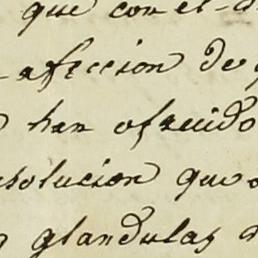 que con el
afeccion de
han ofrecido
solucion que
glandulas